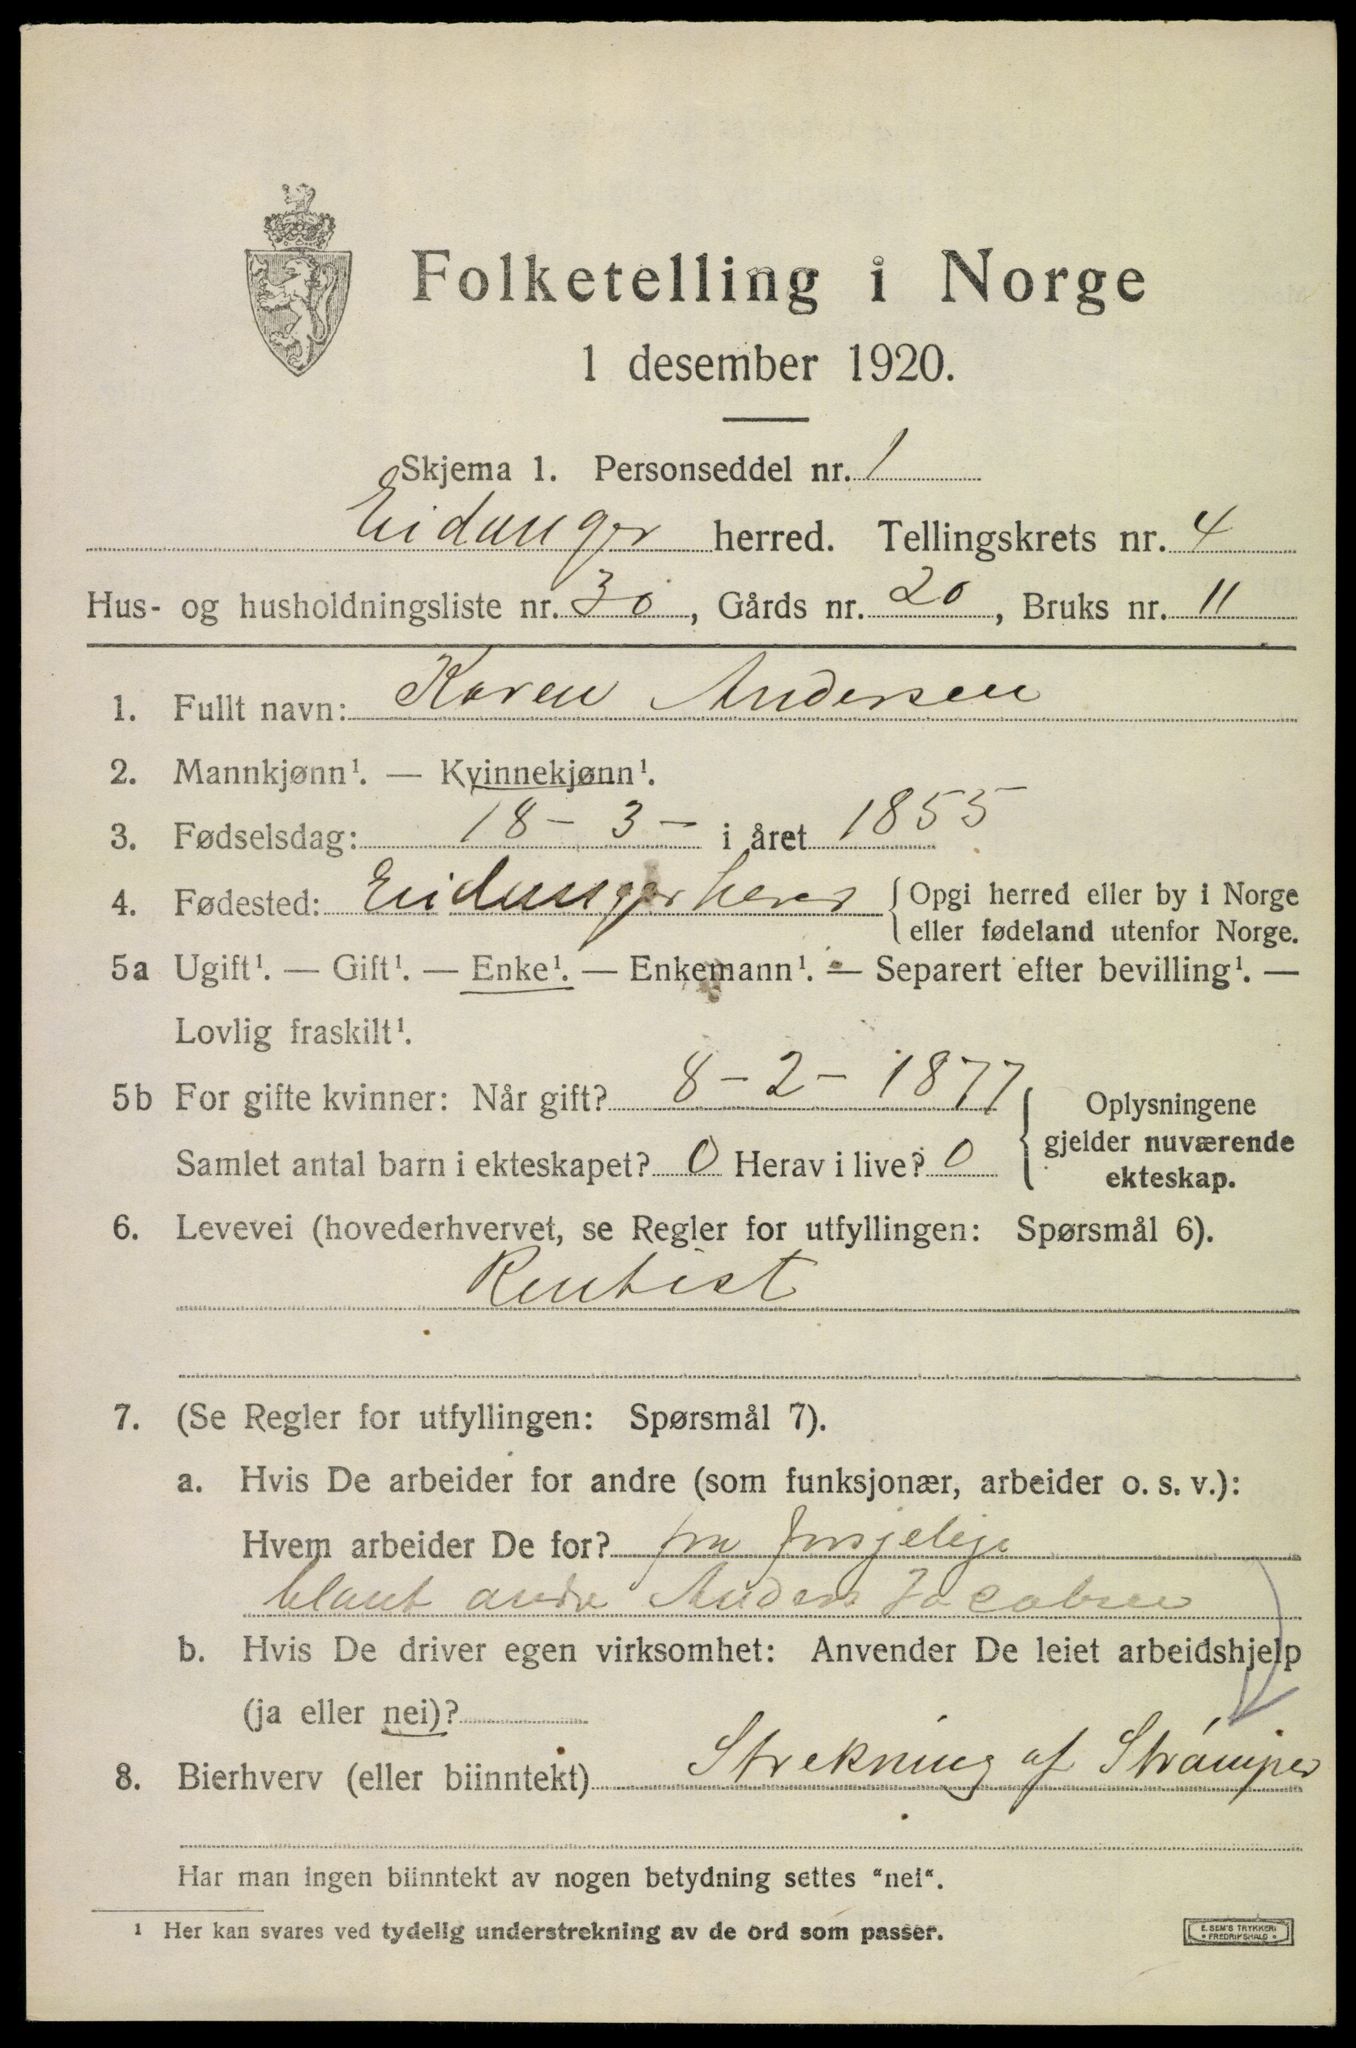 Folketelling i Norge
1 desember 1920.
Skjema 1. Personseddel nr. 1
Eidanger herred. Tellingskrets nr. 4
Hus- og husholdningsliste nr. 30, Gårds nr. 20, Bruks nr. 11
1. Fullt navn: Karen Andersen
2. Mannkjønn¹. — Kvinnekjønn¹.
3. Fødselsdag: 18 - 3 - i året 1855
4. Fødested: Eidanger herred {Opgi herred eller by i Norge
eller fødeland utenfor Norge.
5a Ugift¹. — Gift¹. — Enke¹. — Enkemann¹. — Separert efter bevilling¹. —
Lovlig fraskilt¹.
5b For gifte kvinner: Når gift? 8 - 2 - 1877
Samlet antal barn i ekteskapet? 0 Herav i live? 0
Oplysningene
gjelder nuværende
ekteskap.
6. Levevei (hovederhvervet, se Regler for utfyllingen: Spørsmål 6).
Rentist
7. (Se Regler for utfyllingen: Spørsmål 7).
a. Hvis De arbeider for andre (som funksjonær, arbeider o. s. v.):
Hvem arbeider De for? fra forsjelige
blant andre Anders Jacobsen
b. Hvis De driver egen virksomhet: Anvender De leiet arbeidshjelp
(ja eller nei)?
8. Bierhverv (eller biinntekt) Strekning af Strømper
Har man ingen biinntekt av nogen betydning settes "nei".
¹ Her kan svares ved tydelig understrekning av de ord som passer.
E. SEM'S TRYKKERI
FREDRIKSHALD